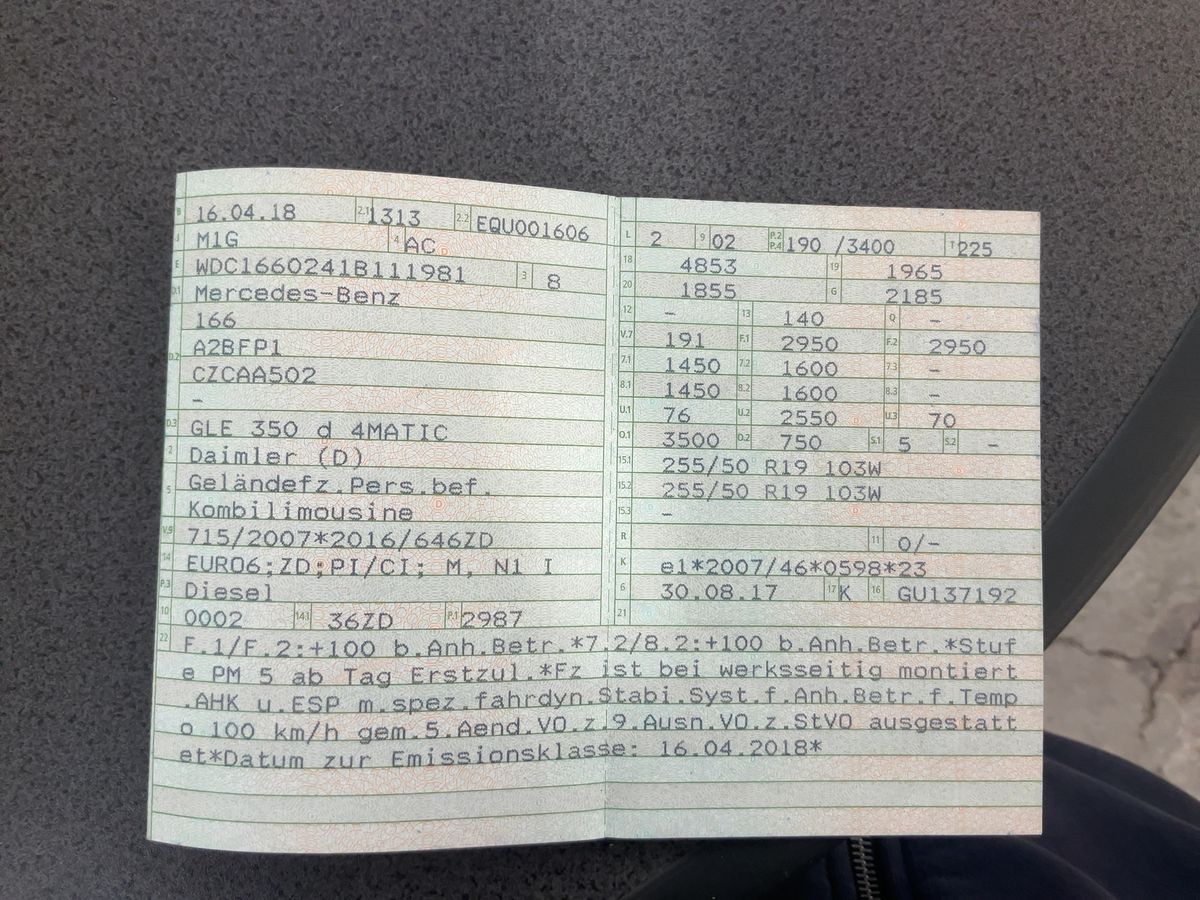 B 16.04.18 2.1 1313 2.2 EQU001606
J M1G 4 AC
E WDC1660241B111981 3 8
D.1 Mercedes-Benz
166
D.2 A2BFP1
CZCAA502
–
D.3 GLE 350 d 4MATIC
2 Daimler (D)
5 Geländefz.Pers.bef.
Kombilimousine
V.9 715/2007*2016/646ZD
14 EURO6;ZD;PI/CI; M, N1 I
P.3 Diesel
10 0002 14.1 36ZD P.1 2987
L 2 9 02 P.2 P.4 190 /3400 T 225
18 4853 19 1965
20 1855 G 2185
12 – 13 140 Q –
V.7 191 F.1 2950 F.2 2950
7.1 1450 7.2 1600 7.3 –
8.1 1450 8.2 1600 8.3 –
U.1 76 U.2 2550 U.3 70
O.1 3500 O.2 750 S.1 5 S.2 –
15.1 255/50 R19 103W
15.2 255/50 R19 103W
15.3 –
R 11 0/-
K e1*2007/46*0598*23
6 30.08.17 17 K 16 GU137192
21
22 F.1/F.2:+100 b.Anh.Betr.*7.2/8.2:+100 b.Anh.Betr.*Stuf
e PM 5 ab Tag Erstzul.*Fz ist bei werksseitig montiert
.AHK u.ESP m.spez.fahrdyn.Stabi.Syst.f.Anh.Betr.f.Temp
o 100 km/h gem.5.Aend.VO.z.9.Ausn.VO.z.StVO ausgestatt
et*Datum zur Emissionsklasse: 16.04.2018*